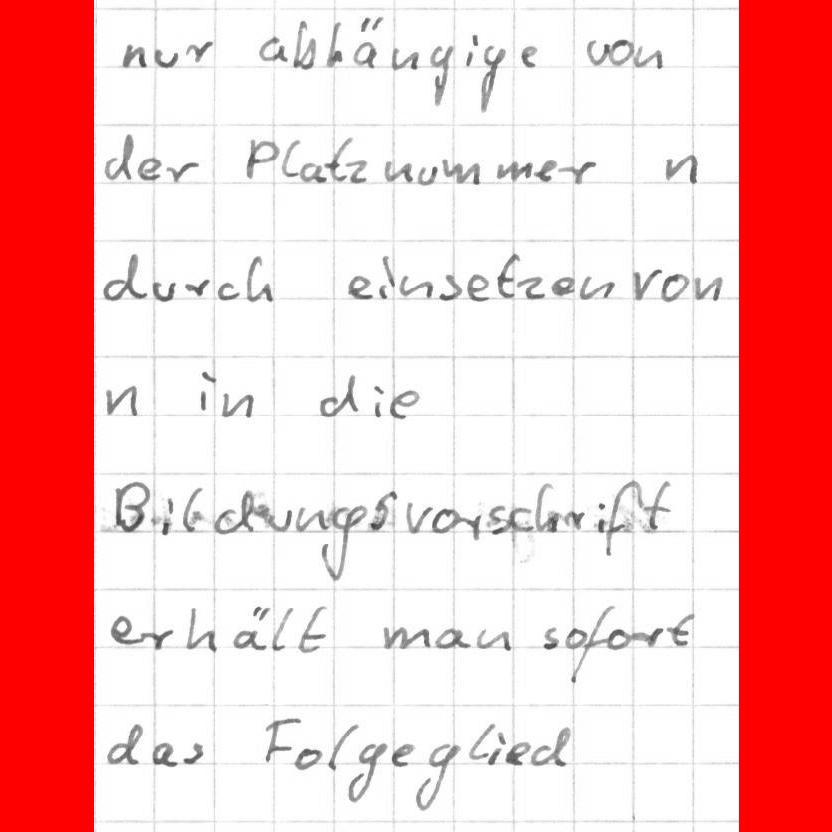 nur abhängige von
der Platznummer n
durch einsetzen von
n in die
Bildungsvorschrift
erhält man sofort
das Folgeglied